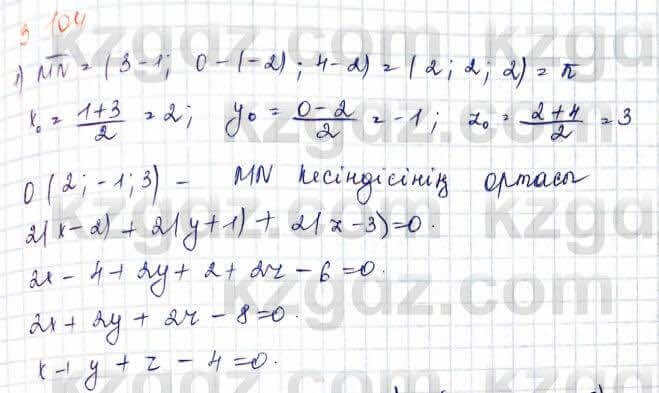 3 104
1) MN = (3-1; 0-(-2); 4-2) = (2; 2; 2) = n
x₀ = (1+3)/2 = 2; y₀ = (0-2)/2 = -1; z₀ = (2+4)/2 = 3
O(2; -1; 3) - MN кесіндісінің ортасы
2(x-2) + 2(y+1) + 2(z-3)=0.
2x - 4 + 2y + 2 + 2z - 6 = 0.
2x + 2y + 2z - 8 = 0.
x + y + z - 4 = 0.
kzgdz.com